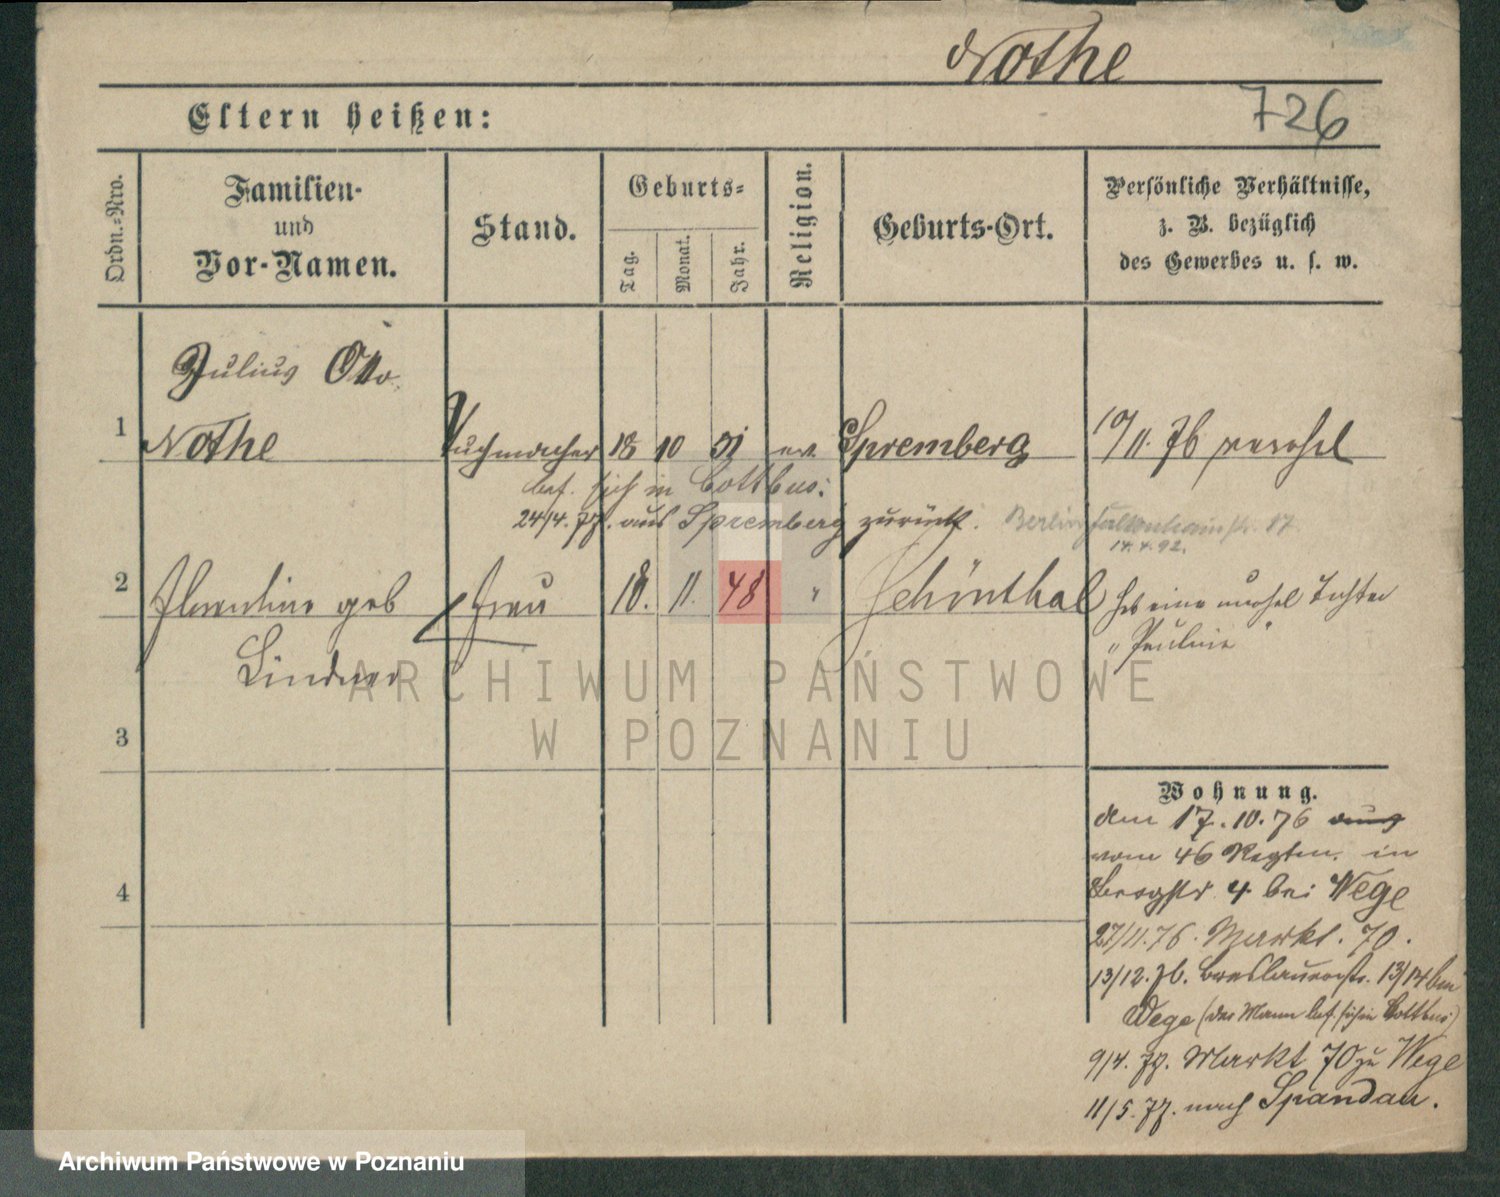 Nothe
726
Eltern heißen:
Ordn.-Nro.
Familien-
und
Vor-Namen.
Stand.
Geburts-
Tag.
Monat.
Jahr.
Religion.
Geburts-Ort.
Persönliche Verhältnisse,
z. B. bezüglich
des Gewerbes u. s. w.
Julius Otto
1 Nothe Tuchmacher 18 10 51 ev. Spremberg 10/11. 76
bef. sich in Cottbus.
24/4. 77. aus Spremberg zurück. Berlin 17
14.4.92.
2 Florentine geb Frau 18. 11. 48 " Schönthal Hat eine unehel Tochter
Lindner
"Pauline"
ARCHIWUM PAŃSTWOWE
W POZNANIU
3
4
Wohnung.
den 17. 10. 76
vom 46 Regtm. in
Bergstr 4. bei Wege
27/11. 76. Markt. 70.
13/12. 76. Breslauerstr. 13/14 bei
Wege (der Mann bef. sich in Cottbus)
9/4. 77. Markt 70 zu Wege
11/5. 77. nach Spandau.
Archiwum Państwowe w Poznaniu